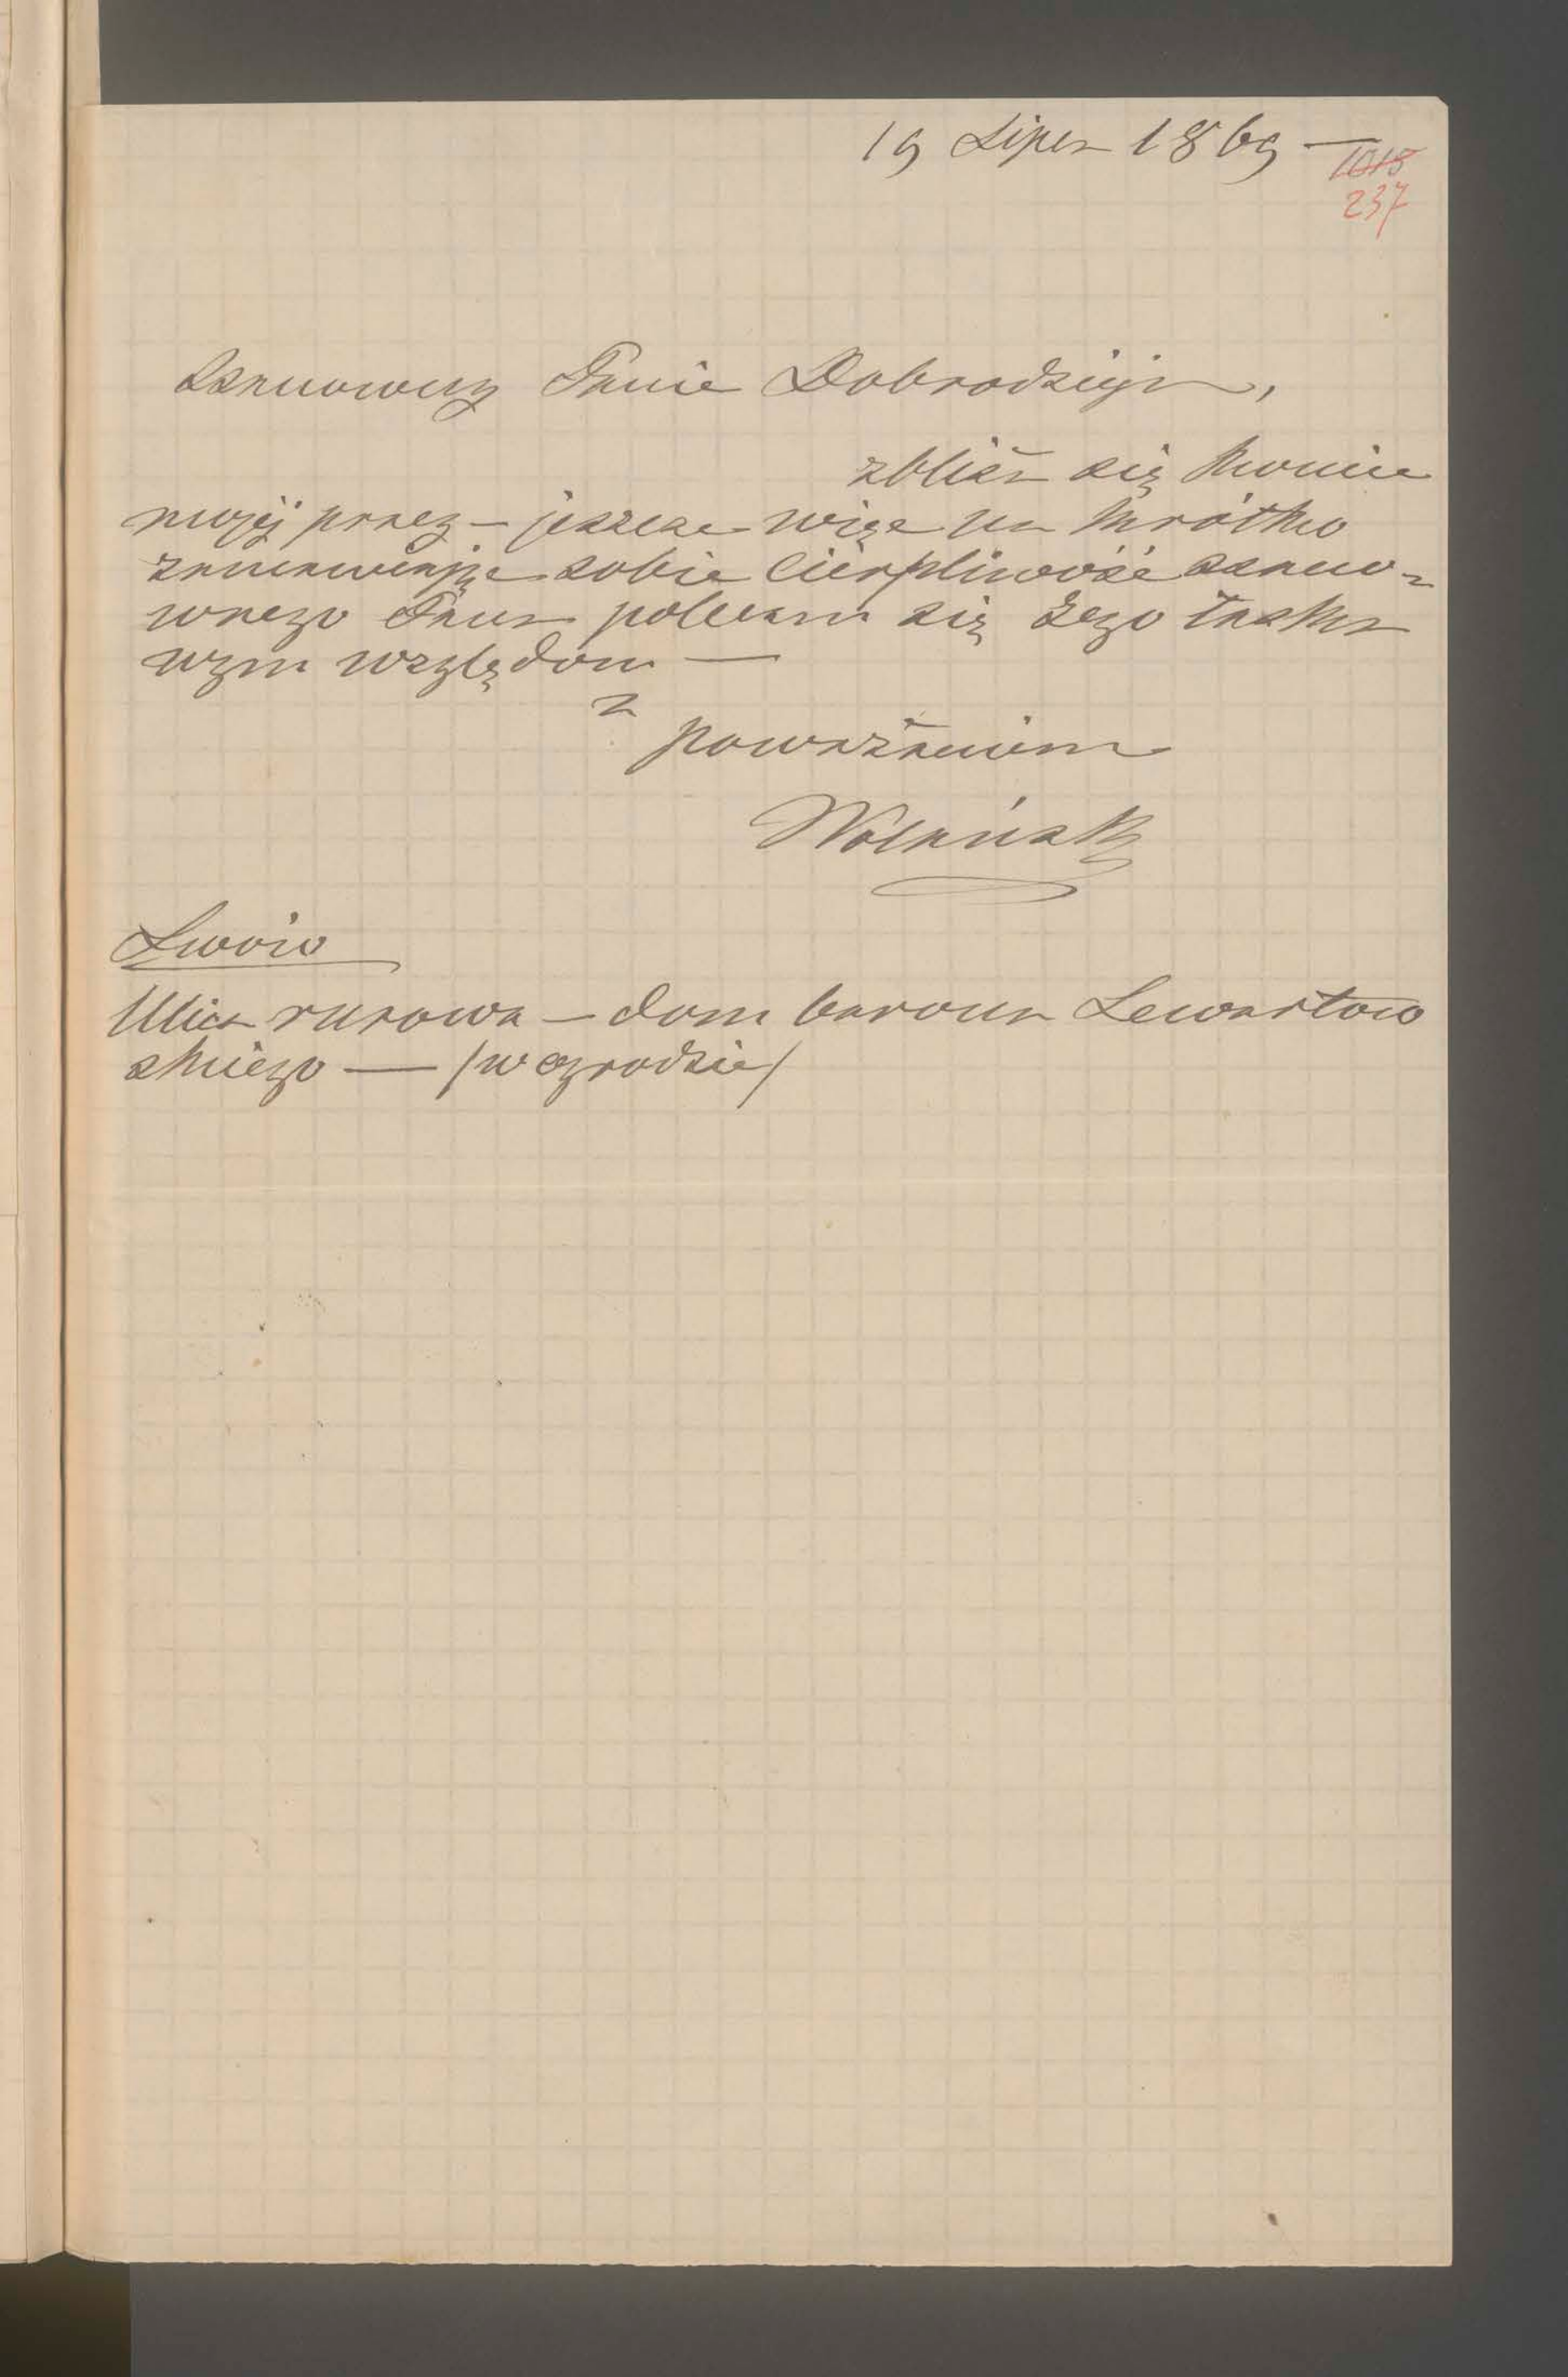 19 Lipca 1869 —
1015
237
Szanowny Panie Dobrodzieju,
zbliża się koniec
mojej pracy — jeszcze więc na krótko
zamawiając sobie cierpliwość szano-
wnego Pana polecam się Jego łaska
wym względom —
z
poważaniem
Wolański
Lwów
Ulica rurowa — dom barona Lewartow
skiego — /w ogrodzie/